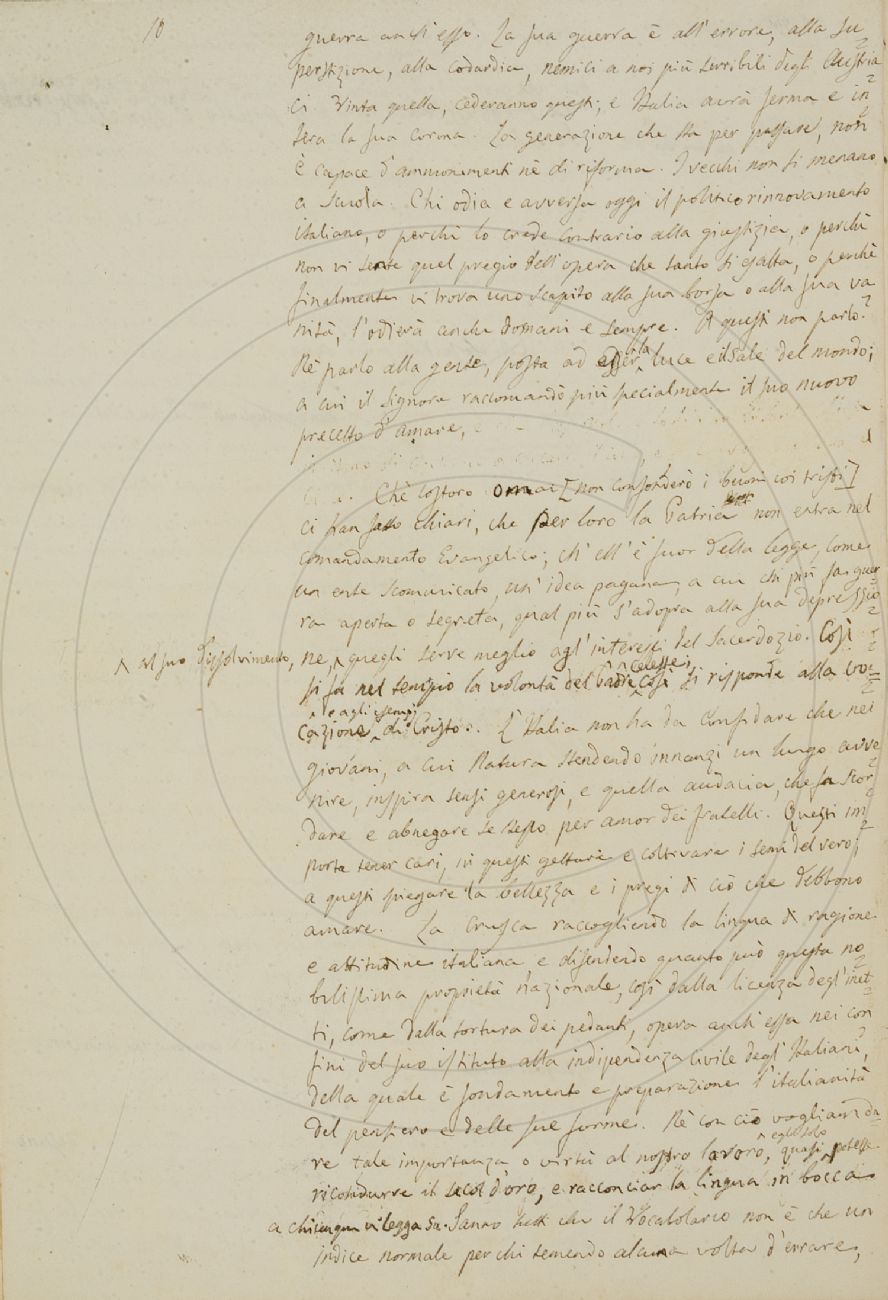 10
guerra anch'esso. La sua guerra è all'errore, alla su=
perstizione, alla codardia, nemici a noi più terribili degli Austria=
ci. Vinta quella, cederanno questi; e Italia avrà ferma e in=
tera la sua corona. La generazione che sta per passare, non
è capace d'ammonimenti nè di riforma. I vecchi non si menano
a scuola. Chi odia e avversa oggi il politico rinnovamento
italiano, o perchè lo crede contrario alla giustizia, o perchè
non vi sente quel pregio dell'opera che tanto si esalta, o perchè
finalmente vi trova uno scapito alla sua borsa o alla sua va=
nità, l'odierà anche domani e sempre. A questi non parlo.
Nè parlo alla gente, posta ad esser la luce e il sale del mondo;
a cui il Signore raccomandò più specialmente il suo nuovo
precetto d'amare,
Chè costoro omai [non confonderò i buoni coi tristi]
ci fan fatto chiari, che per loro la Patria non entra nel
comandamento Evangelico; ch'ell'è fuor della legge, come
un ente scomunicato, un'idea pagana, a cui chi più fa guer=
ra aperta o segreta, qual più s'adopra alla sua depressio=
^ al suo dissolvimento, ne, ^ quegli serve meglio agl'interessi del Sacerdozio. Così
si fa nel tempio la volontà del Padre ^ celeste; Così si risponde alla vo=
cazione ^ e agli esempj di Cristo. L'Italia non ha da confidare che nei
giovani, a cui Natura stendendo innanzi un lungo avve=
nire, inspira sensi generosi, e quella audacia, che fa scor=
dare e abnegare se stesso per amor dei fratelli. Questi im=
porta tener cari, in questi gettare e coltivare i semi del vero;
a questi spiegare la bellezza e i pregi di ciò che debbono
amare. La Crusca raccogliendo la lingua di ragione
e attitudine italiana e difendendo quanto può questa no=
bilissima proprietà nazionale, così dalla licenza degl'inet=
ti, come dalla tortura dei pedanti, opera anch'essa nei con=
fini del suo istituto alla indipendenza civile degl'Italiani,
della quale è fondamento e preparazione l'italianità
del pensiero e delle sue forme. Nè con ciò vogliam da=
re tale importanza o virtù al nostro lavoro, quasi ^ egli solo potesse
ricondurre il secol d'oro, e racconciar la lingua in bocca
a chiunque vi legga su. Sanno tutti che il Vocabolario non è che un
indice normale per chi temendo alcuna volta d'errare,